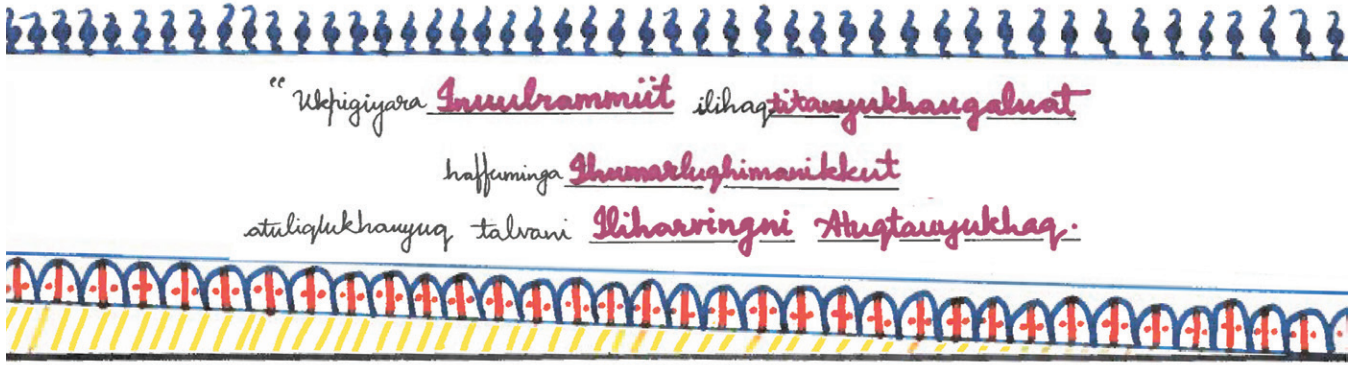 “Ukpigiyara Inuulrammiit ilihaqtitauyukhaugaluat
haffuminga Ihumarluqhimanikkut
atuliqtukhauyuq talvani Iliharvingni Atuqtauyukhaq.